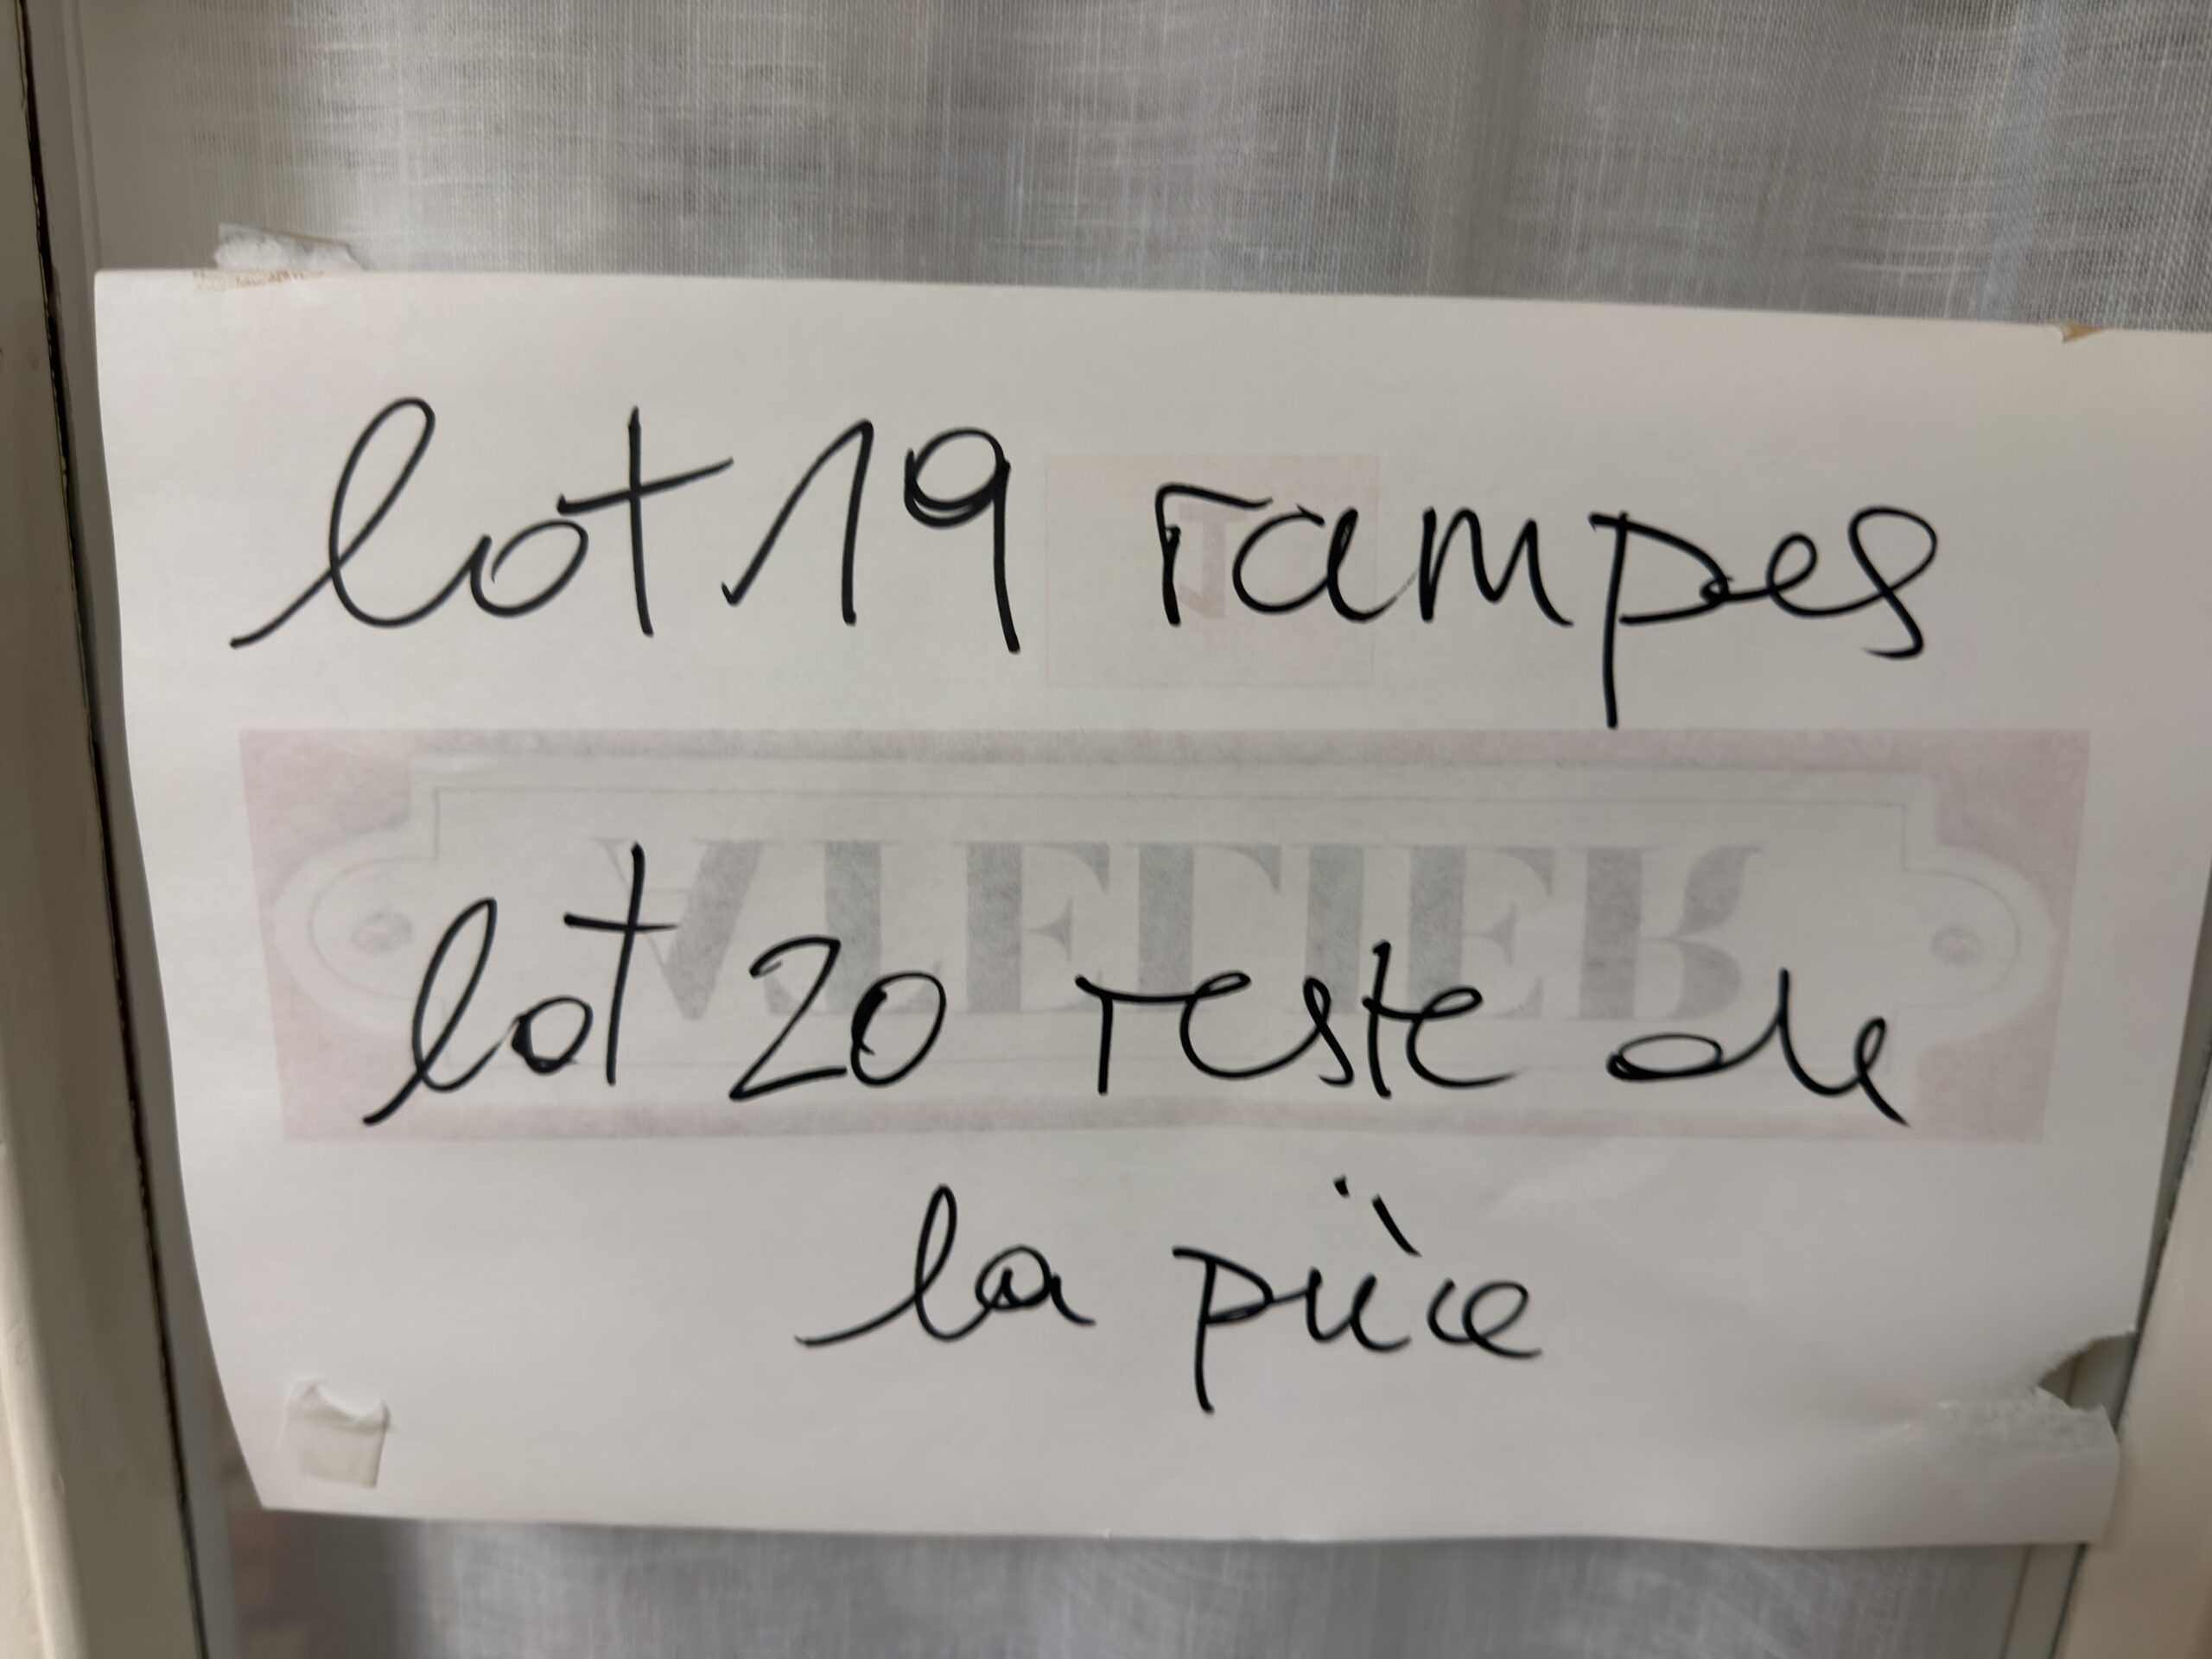 lot 19 rampes
ATELIER
lot 20 reste de
la pièce